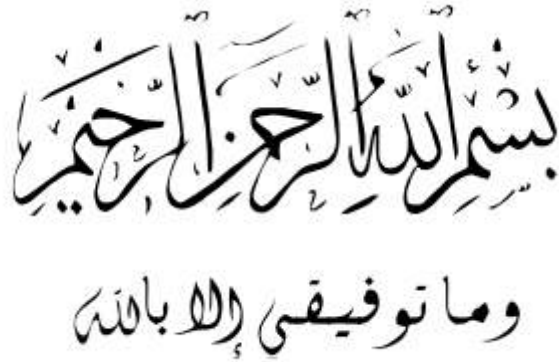 بِسْمِ اللَّهِ الرَّحْمَنِ الرَّحِيمِ
وما توفيقي إلا بالله